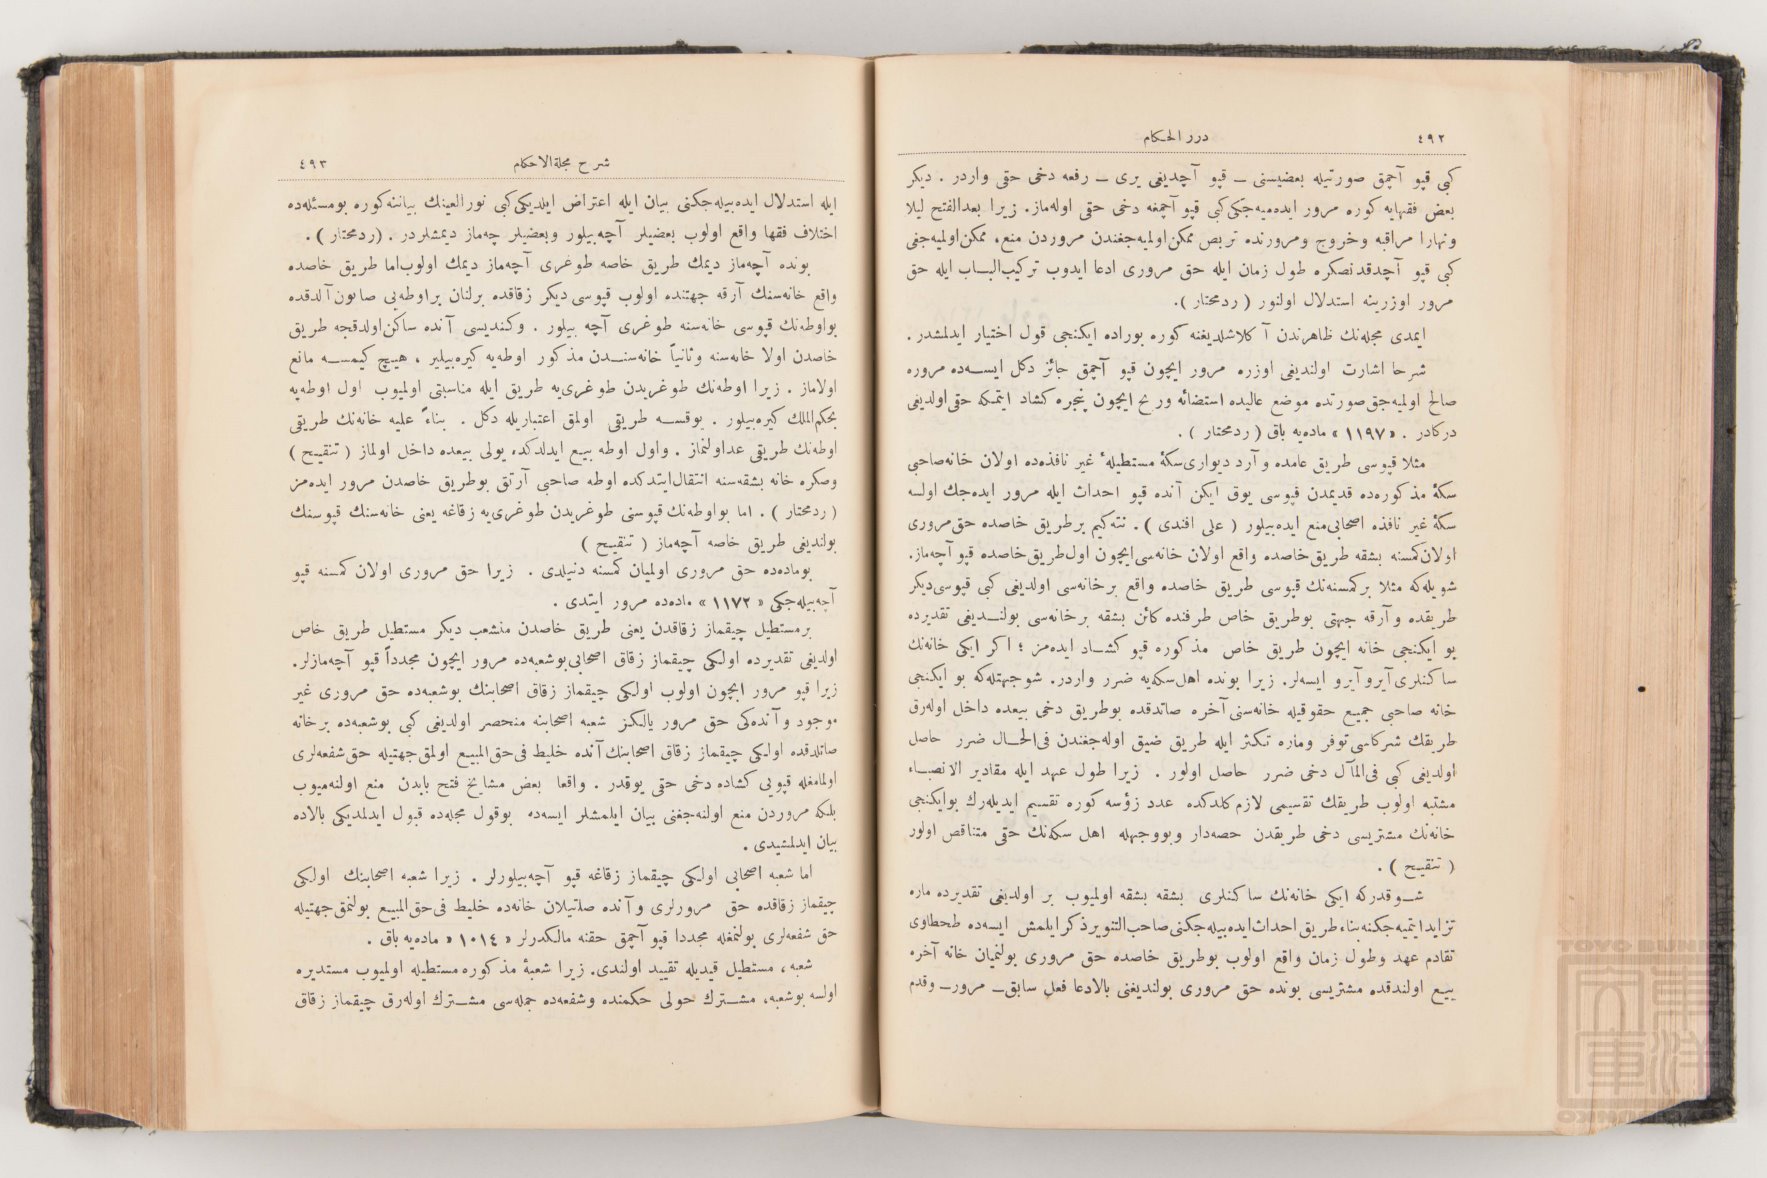 ٤٩٢
درر الحكام
كبى قپو آچمق صورتيله بعضيسنى ـ قپو آچديغى يرى ـ رفعه دخى حقى واردر . ديكر
بعض فقهايه كوره مرور ايده‌ميه‌جكى كبى قپو آچمغه دخى حقى اوله‌ماز. زيرا بعدالفتح ليلا
ونهارا مراقبه وخروج ومرورنده تربص ممكن اولميه‌جغندن مروردن منع، ممكن اولميه‌جغى
كبى قپو آچدقدنصكره طول زمان ايله حق مرورى ادعا ايدوب تركيب‌البـاب ايله حق
مرور اوزرينه استدلال اولنور ( ردمحتار ).
ايمدى مجله‌نك ظاهرندن آكلاشلديغنه كوره بوراده ايكنجى قول اختيار ايدلمشدر .
شرحا اشارت اولنديغى اوزره مرور ايچون قپو آچمق جائز دكل ايسـه‌ده مروره
صالح اولميه‌جق صورتده موضع عاليده استضائه وريح ايچون پنجره كشاد ايتمكه حقى اولديغى
دركادر . « ١١٩٧ » ماده‌يه باق ( ردمحتار ) .
مثلا قپوسى طريق عامده و آرد ديوارى سكهٔ مستطيلهٔ غير نافذه‌ده اولان خانه صاحبى
سكهٔ مذكوره‌ده قديمدن قپوسى يوق ايكن آنده قپو احداث ايله مرور ايده‌جك اولسه
سكهٔ غير نافذه اصحابى منع ايده‌بيلور ( على افندى ) . نته‌كيم بر طريق خاصده حق مرورى
اولان كمسنه بشقه طريق خاصده واقع اولان خانه‌سى ايچون اول طريق خاصده قپو آچه‌ماز.
شويله‌كه مثلا بر كمسنه‌نك قپوسى طريق خاصده واقع بر خانه‌سى اولديغى كبى قپوسى ديكر
طريقده و آرقه جهتى بوطريق خاص طرفنده كائن بشقه بر خانه‌سى بولنـديغى تقديرده
بو ايكنجى خانه ايچون طريق خاص مذكوره قپو كشـاد ايده‌مز ؛ اكر ايكى خانه‌نك
ساكنلرى آيرو آيرو ايسه‌لر. زيرا بونده اهل سكه‌يه ضرر واردر. شو جهتله‌كه بو ايكنجى
خانه صاحبى جميع حقوقيله خانه‌سنى آخره صاتدقده بوطريق دخى بيعده داخل اوله‌رق
طريقك شركاسى توفر وماره تكثر ايله طريق ضيق اوله‌جغندن فى‌الحـال ضرر حاصل
اولديغى كبى فى‌المآل دخى ضرر حاصل اولور . زيرا طول عهد ايله مقادير الانصبـاء
مشتبه اولوب طريقك تقسيمى لازم كلدكده عدد رؤسه كوره تقسيم ايديله‌رك بو ايكنجى
خانه‌نك مشتريسى دخى طريقدن حصه‌دار وبووجهله اهل سكه‌نك حقى متناقص اولور
( تنقيح ) .
شـوقدركه ايكى خانه‌نك ساكنلرى بشقه بشقه اولميوب بر اولديغى تقديرده ماره
تزايد ايتميه‌جكنه بناء طريق احداث ايده‌بيله‌جكنى صاحب‌التنوير ذكر ايلمش ايسه‌ده طحطاوى
تقادم عهد وطول زمان واقع اولوب بوطريق خاصده حق مرورى بولنميان خانه آخره
بيـع اولندقده مشتريسى بونده حق مرورى بولنديغنى بالادعا فعلِ سابق ـ مرور ـ وقدم
شرح مجلة الاحكام
٤٩٣
ايله استدلال ايده‌بيله‌جكنى بيان ايله اعتراض ايلديكى كبى نورالعينك بياننه كوره بومسئله‌ده
اختلاف فقها واقع اولوب بعضيلر آچه‌بيلور وبعضيلر چه‌ماز ديمشلردر . ( ردمحتار ) .
بونده آچه‌ماز ديمك طريق خاصه طوغرى آچه‌ماز ديمك اولوب اما طريق خاصده
واقع خانه‌سنك آرقه جهتنده اولوب قپوسى ديكر زقاقده برلنان بر اوطه‌يى صاتون آلدقده
بو اوطه‌نك قپوسى خانه‌سنه طوغرى آچه بيلور . وكنديسى آنده ساكن اولدقجه طريق
خاصدن اولا خانه‌سنه وثانياً خانه‌سنـدن مذكور اوطه‌يه كيره‌بيلير ، هيچ كيمسـه مانع
اولاماز . زيرا اوطه‌نك طوغريدن طوغرى‌يه طريق ايله مناسبتى اولميوب اول اوطه‌يه
بحكم‌الملك كيره‌بيلور . يوقسـه طريقى اولمق اعتباريله دكل . بناءً عليه خانه‌نك طريقى
اوطه‌نك طريقى عداولنماز . واول اوطه بيـع ايدلدكده يولى بيعده داخل اولماز ( تنقيـح )
وصكره خانه بشقه‌سنه انتقال ايتدكده اوطه صاحبى آرتق بوطريق خاصدن مرور ايده‌مز
( ردمحتار ) . اما بواوطه‌نك قپوسنى طوغريدن طوغرى‌يه زقاغه يعنى خانه‌سنك قپوسنك
بولنديغى طريق خاصه آچه‌ماز ( تنقيـح )
بوماده‌ده حق مرورى اولميان كمسنه دنيلدى . زيرا حق مرورى اولان كمسنه قپو
آچه‌بيله‌جكى « ١١٧٢ » ماده‌ده مرور ايتدى .
برمستطيل چيقماز زقاقدن يعنى طريق خاصدن منشعب ديكر مستطيل طريق خاص
اولديغى تقديرده اولكى چيقماز زقاق اصحابى بوشعبه‌ده مرور ايچون مجدداً قپو آچه‌مازلر.
زيرا قپو مرور ايچون اولوب اولكى چيقماز زقاق اصحابنك بوشعبه‌ده حق مرورى غير
موجود و آنده‌كى حق مرور يالكز شعبه اصحابنه منحصر اولديغى كبى بوشعبه‌ده بر خانه
صاتلدقده اولكى چيقماز زقاق اصحابنك آنده خليط فى حق المبيـع اولمق جهتيله حق شفعه‌لرى
اولمامغله قپويى كشاده دخى حقى يوقدر . واقعا بعض مشايخ فتح بابدن منع اولنه‌ميوب
بلكه مروردن منع اولنه‌جغنى بيان ايلمشلر ايسه‌ده بوقول مجله‌ده قبول ايدلمديكى بالاده
بيان ايدلمشيدى .
اما شعبه اصحابى اولكى چيقماز زقاغه قپو آچه‌بيلورلر . زيرا شعبه اصحابنك اولكى
چيقماز زقاقده حق مرورلرى و آنده صاتيلان خانه‌ده خليط فى حق المبيع بولنمق جهتيله
حق شفعه‌لرى بولنمغله مجددا قپو آچمق حقنه مالكدرلر « ١٠١٤ » ماده‌يه باق .
شعبه ، مستطيل قيديله تقييد اولندى. زيرا شعبهٔ مذكوره مستطيله اولميوب مستديره
اولسه بوشعبه، مشـترك حولى حكمنده وشفعه‌ده جمله‌سى مشـترك اوله‌رق چيقماز زقاق